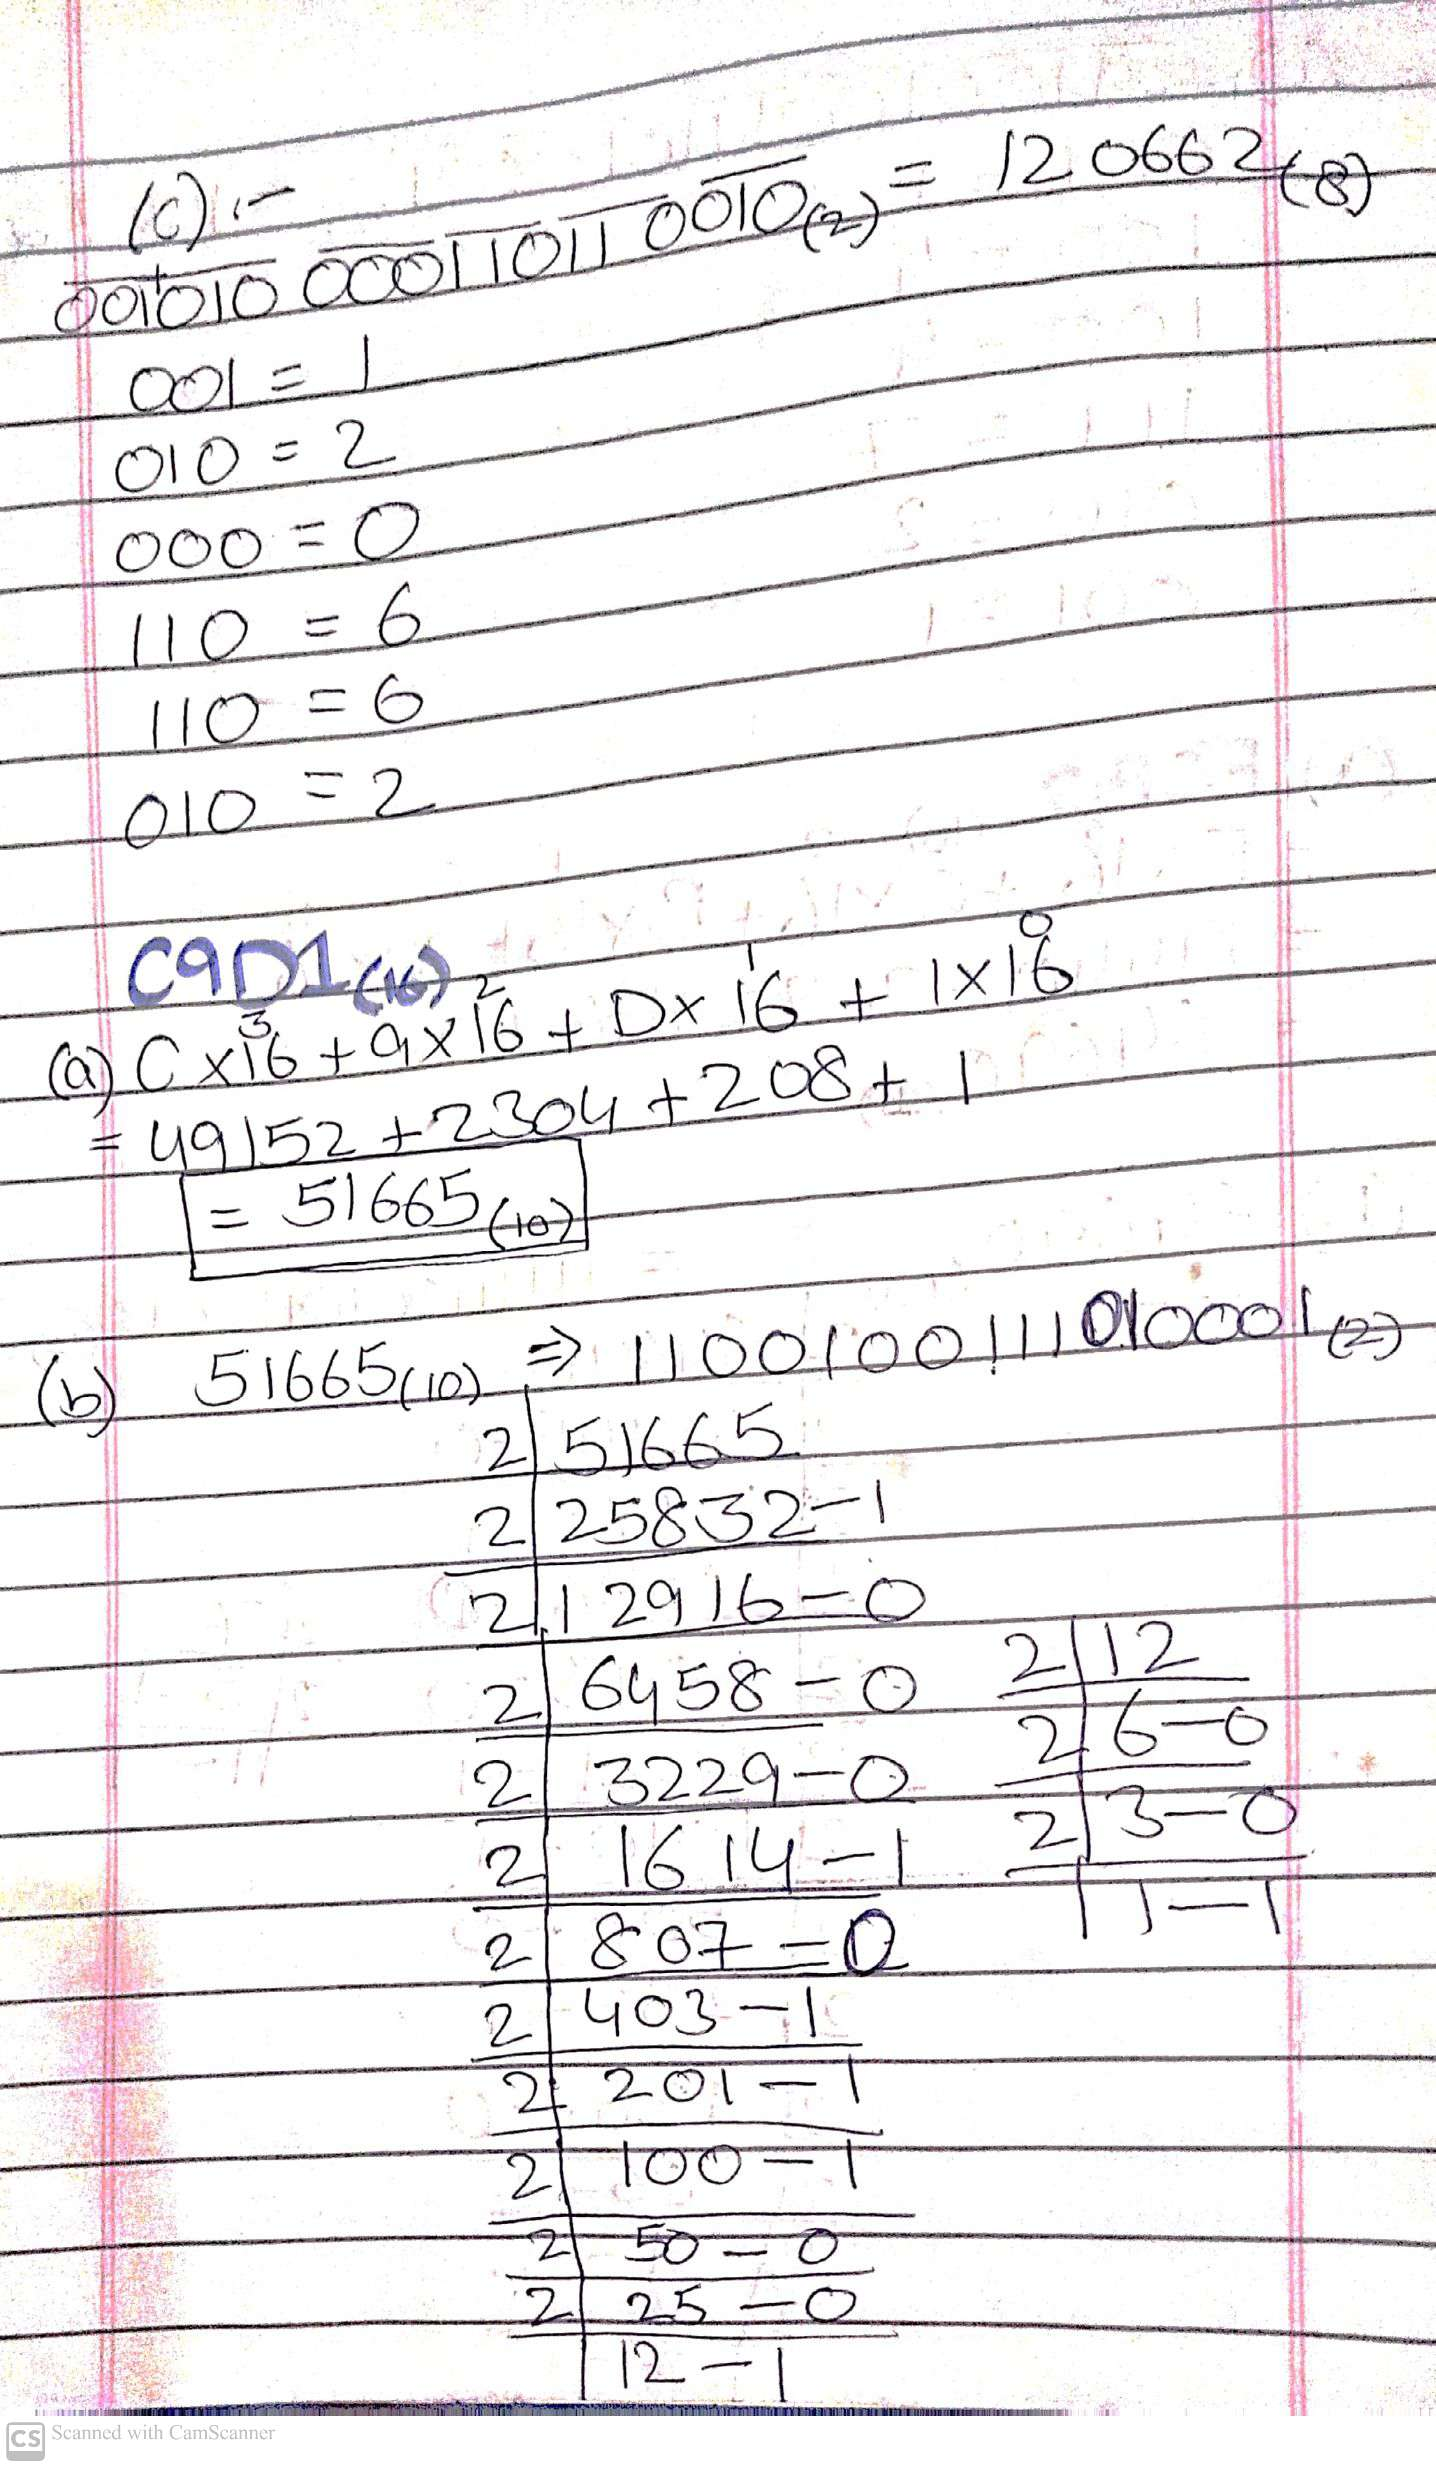 (c) :-
001010 000110110010(2) = 120662(8)
001 = 1
010 = 2
000 = 0
110 = 6
110 = 6
010 = 2
C9D1(16)
(a) C x 16³ + 9 x 16² + D x 16¹ + 1 x 16⁰
= 49152 + 2304 + 208 + 1
= 51665(10)
(b) 51665(10) ⇒ 1100100111010001(2)
2 | 51665
2 | 25832 - 1
2 | 12916 - 0
2 | 6458 - 0
2 | 3229 - 0
2 | 1614 - 1
2 | 807 - 0
2 | 403 - 1
2 | 201 - 1
2 | 100 - 1
2 | 50 - 0
2 | 25 - 0
| 12 - 1
2 | 12
2 | 6 - 0
2 | 3 - 0
| 1 - 1
CS Scanned with CamScanner